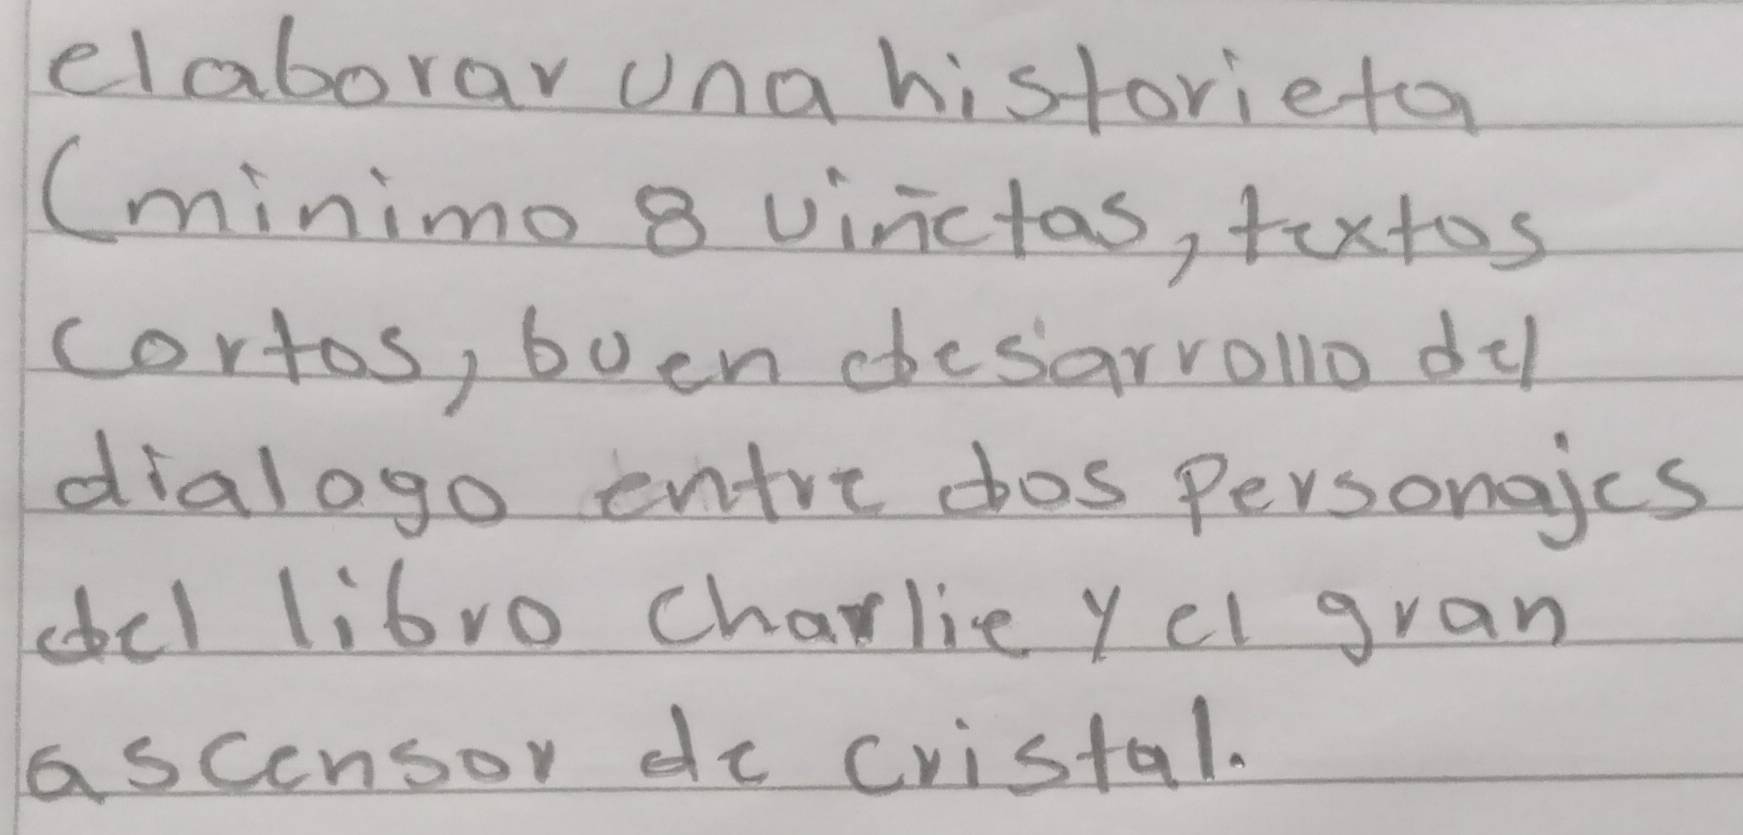 elaborar una historieta
(minimo 8 viñctas, textos
cortos, buen desarrollo del
dialogo entre dos personajes
del libro charlie y el gran
ascensor de cristal.